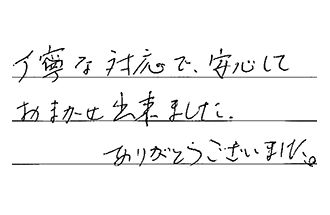 丁寧な対応で、安心して
おまかせ出来ました。
ありがとうございました。